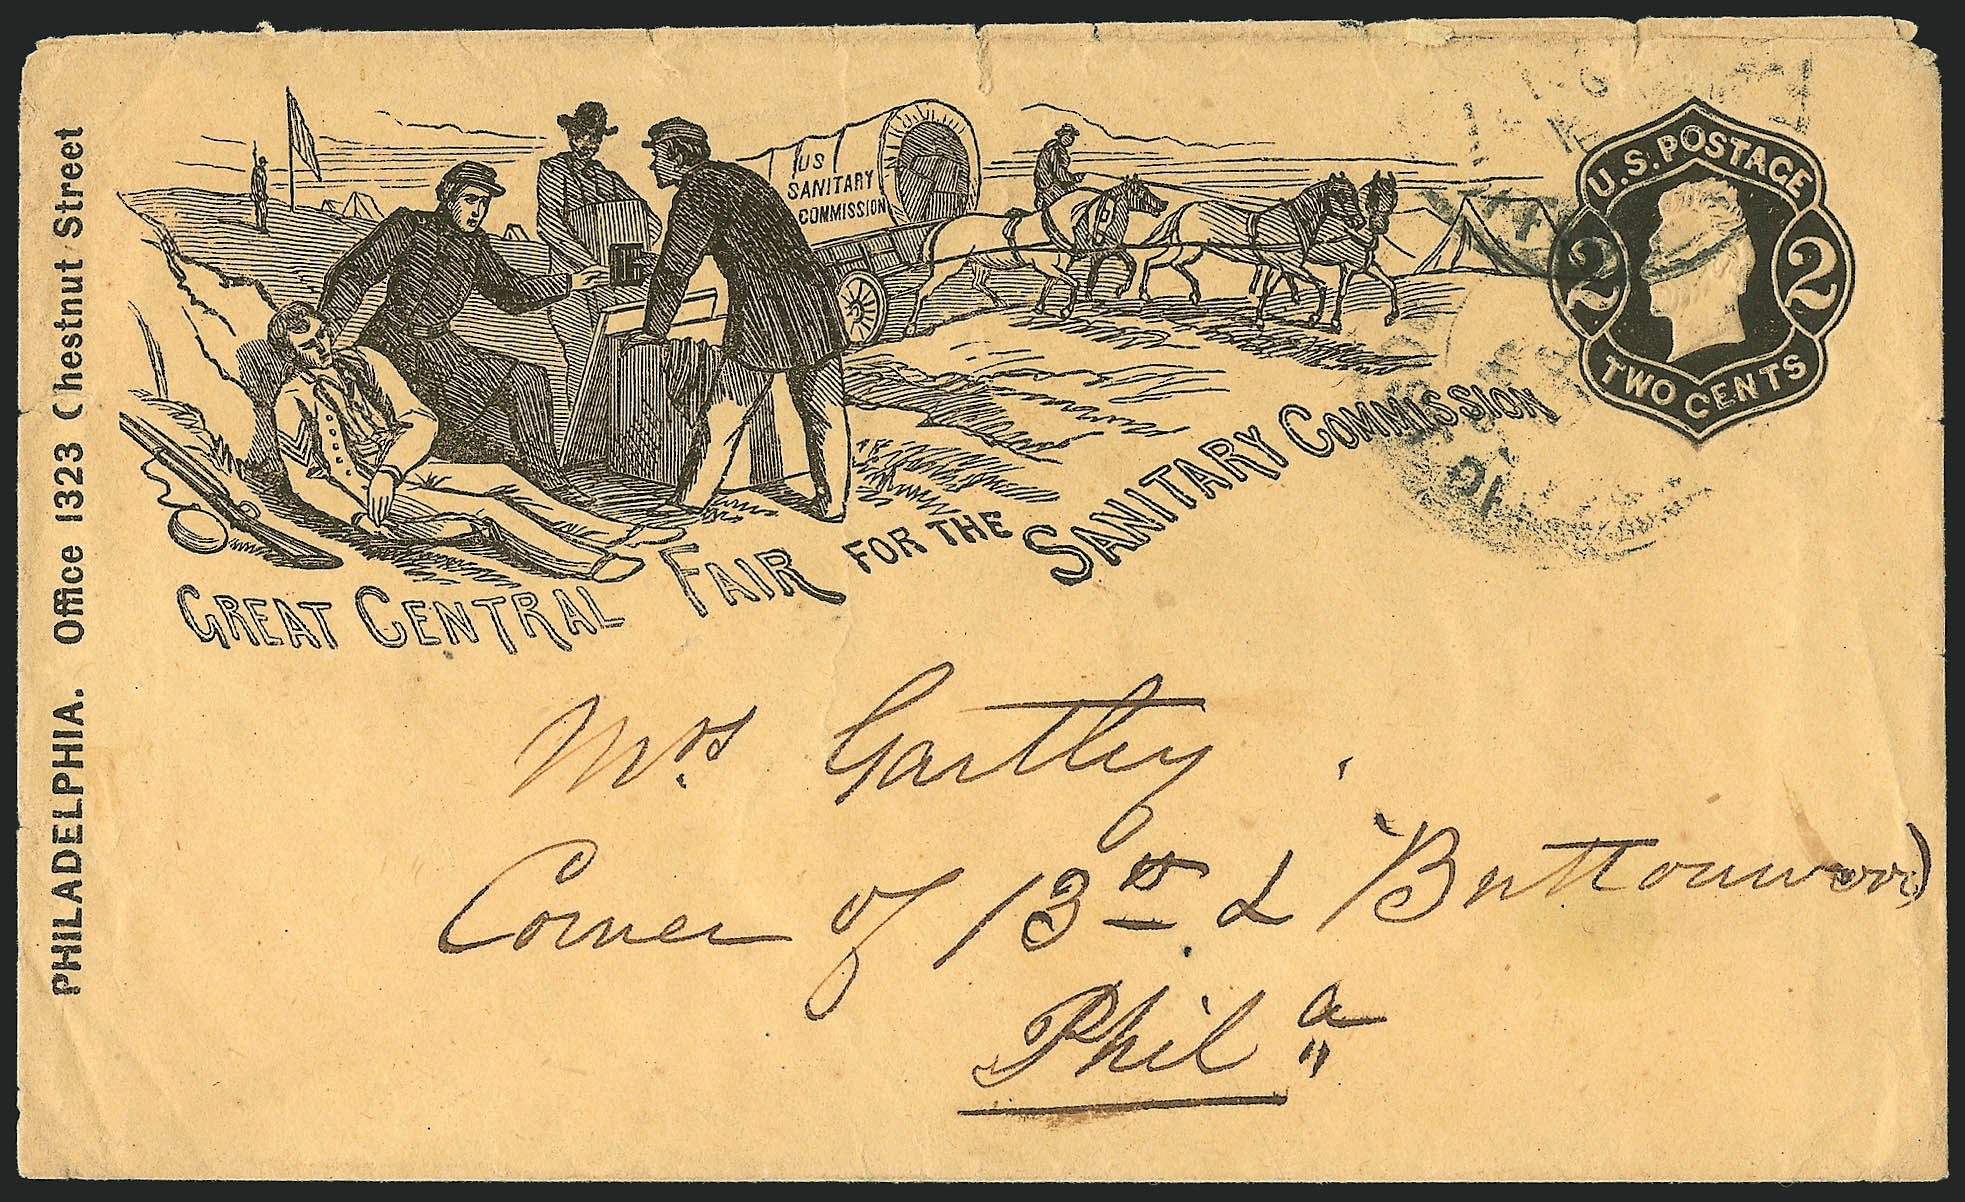 PHILADELPHIA. Office 1323 Chestnut Street
US
SANITARY
COMMISSION
GREAT CENTRAL FAIR FOR THE SANITARY COMMISSION
U.S. POSTAGE
2 2
TWO CENTS
Mrs Gartley
Corner of 13th & Buttonwood
Phila